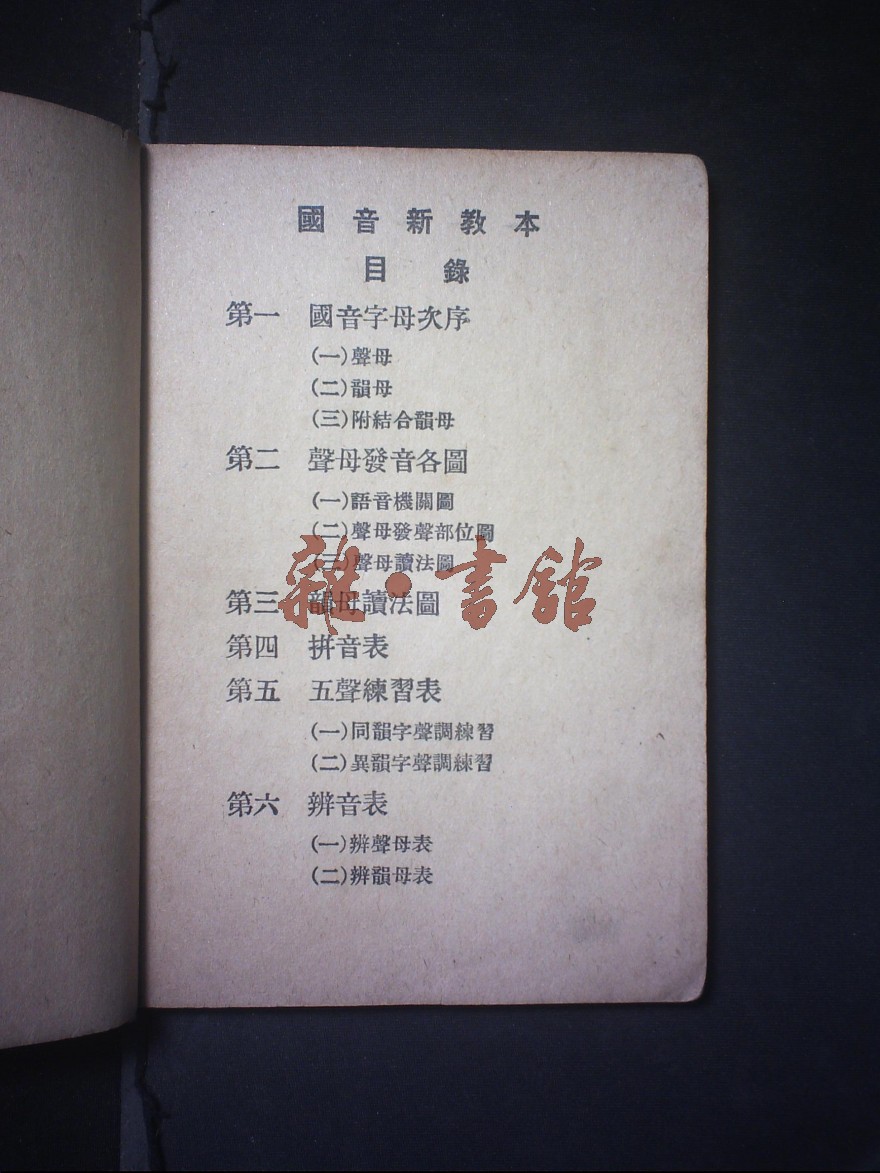 國音新教本
目錄
第一 國音字母次序
(一)聲母
(二)韻母
(三)附結合韻母
第二 聲母發音各圖
(一)語音機關圖
(二)聲母發聲部位圖
(三)聲母讀法圖
雜·書館
第三 韻母讀法圖
第四 拼音表
第五 五聲練習表
(一)同韻字聲調練習
(二)異韻字聲調練習
第六 辨音表
(一)辨聲母表
(二)辨韻母表